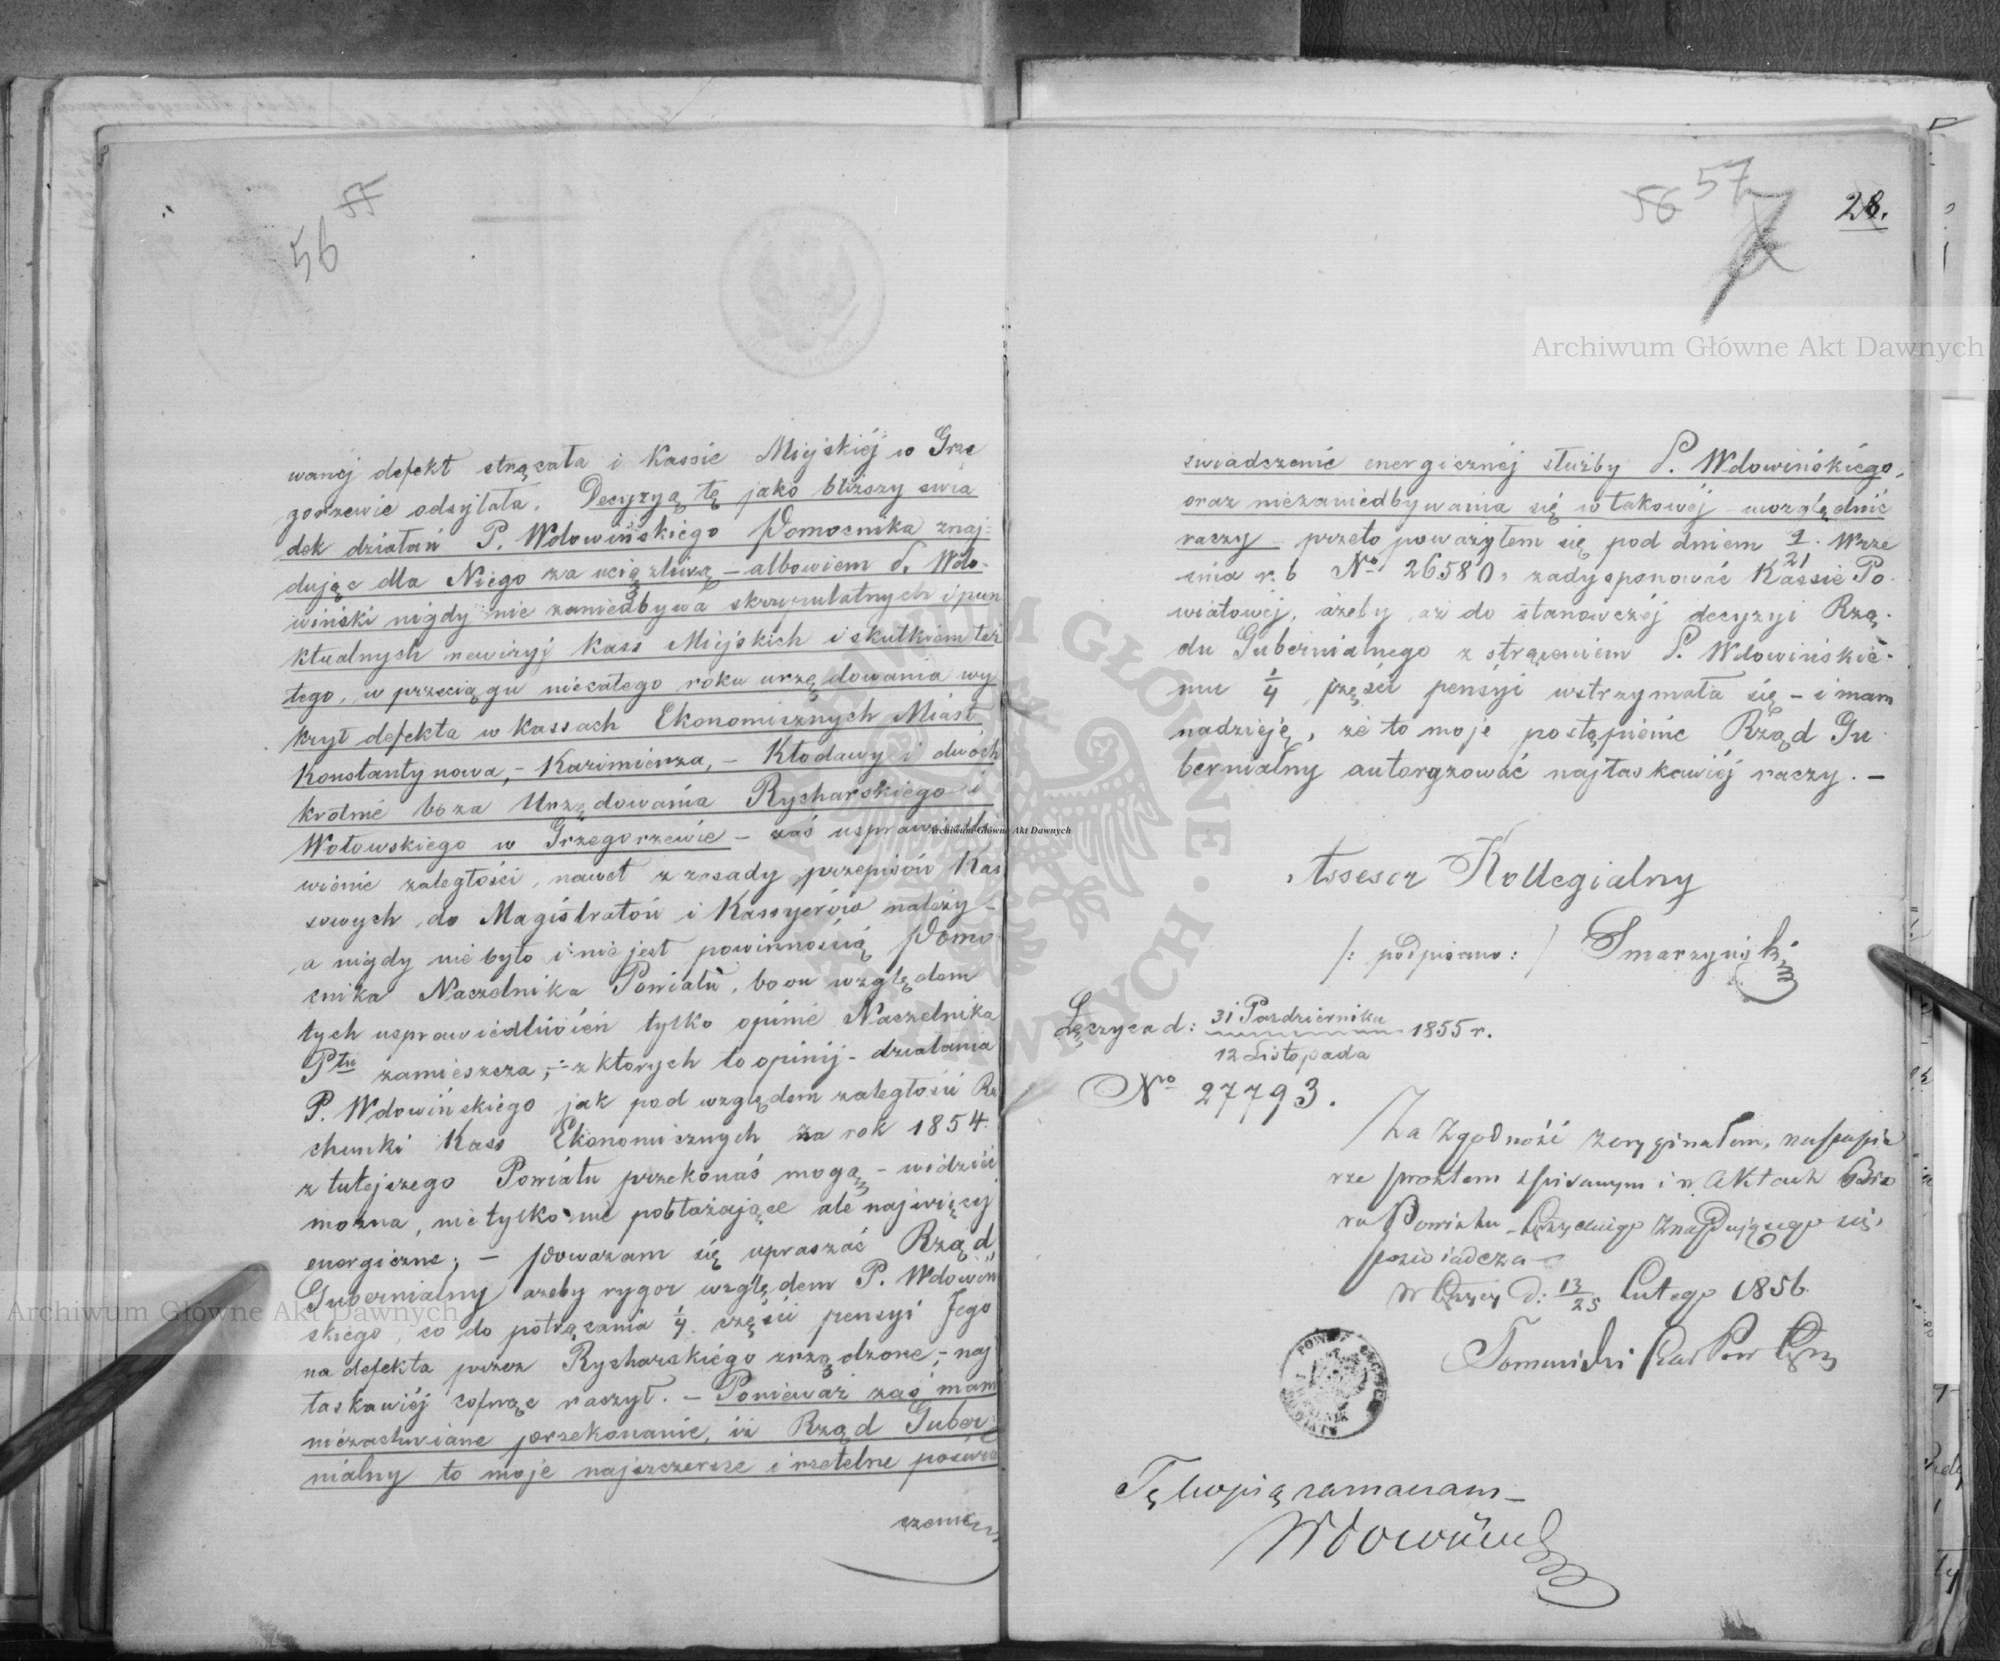 56 57
wanéj defekt strącała i Kassie Miejskiéj w Grze
gorzewie odsyłała. Decyzyą tę jako bliższy świa
dek działań P. Wdowińskiego Pomocnika znaj-
dując dla Niego za uciążliwą – albowiem P. Wdo-
wiński nigdy nie zaniedbywa skrupulatnych i pun
ktualnych rewizyj Kass Miejskich i skutkiem też
tego, w przeciągu niecałego roku urzędowania wy
krył defekta w Kassach Ekonomicznych Miast
Konstantynowa, – Kazimierza, – Kłodawy i dwóch
krotnie bo za Urzędowania Rycharskiego i
Wołowskiego w Grzegorzewie – zaś usprawiedli
wienie zaległości, nawet z zasady przepisów Kas
sowych do Magistratów i Kassyerów należy –
a nigdy nie było i nie jest powinnością Pomo
cnika Naczelnika Powiatu, bo on względem
tych usprawiedliwień tylko opinie Naczelnika
Ptu zamieszcza, – z których to opinij – działania
P. Wdowińskiego jak pod względem zaległości Ra
chunki Kass Ekonomicznych za rok 1854.
z tutejszego Powiatu przekonać mogą – widzieć
można, nie tylko nie pobłażające ale najwięcéj
energiczne; – poważam się upraszać Rząd
Gubernialny ażeby rygor względem P. Wdowiń
skiego, co do potrącania 1/4 części pensyi Jego
na defekta przez Rycharskiego zrządzone, – naj
łaskawiéj cofnąć raczył. – Ponieważ zaś mam
niezachwiane przekonanie, iż Rząd Guber-
nialny to moje najszczersze i rzetelne poświa
czenie
56 57 28.
świadczenie energicznéj służby P. Wdowińskiego,
oraz niezaniedbywania się w takowéj – uwzględnić
raczy – przeto poważyłem się pod dniem 9/21 Wrze
śnia r. b № 26580, zadysponować Kassie Po-
wiatowéj, ażeby aż do stanowczéj decyzyi Rzą-
du Gubernialnego z strąceniem P. Wdowińskie-
mu 1/4 części pensyi wstrzymała się – i mam
nadzieję, że to moje postąpienie Rząd Gu-
bernialny autoryzować najłaskawiéj raczy. –
Assesor Kollegialny
/: podpisano: / Smarzyński
Łęczyca d: 31 Października / 12 Listopada 1855 r.
№ 27793.
Za Zgodność z oryginałem, na papie
rze prostem spisanym i w Aktach Biu
ra Powiatu Łęczyckiego znajdującego się,
poświadcza –
W Łęczycy d: 13/25 Lutego 1856.
Tę kopią zamawiam –
Archiwum Główne Akt Dawnych
Archiwum Główne Akt Dawnych
Archiwum Główne Akt Dawnych
ARCHIWUM GŁÓWNE AKT DAWNYCH